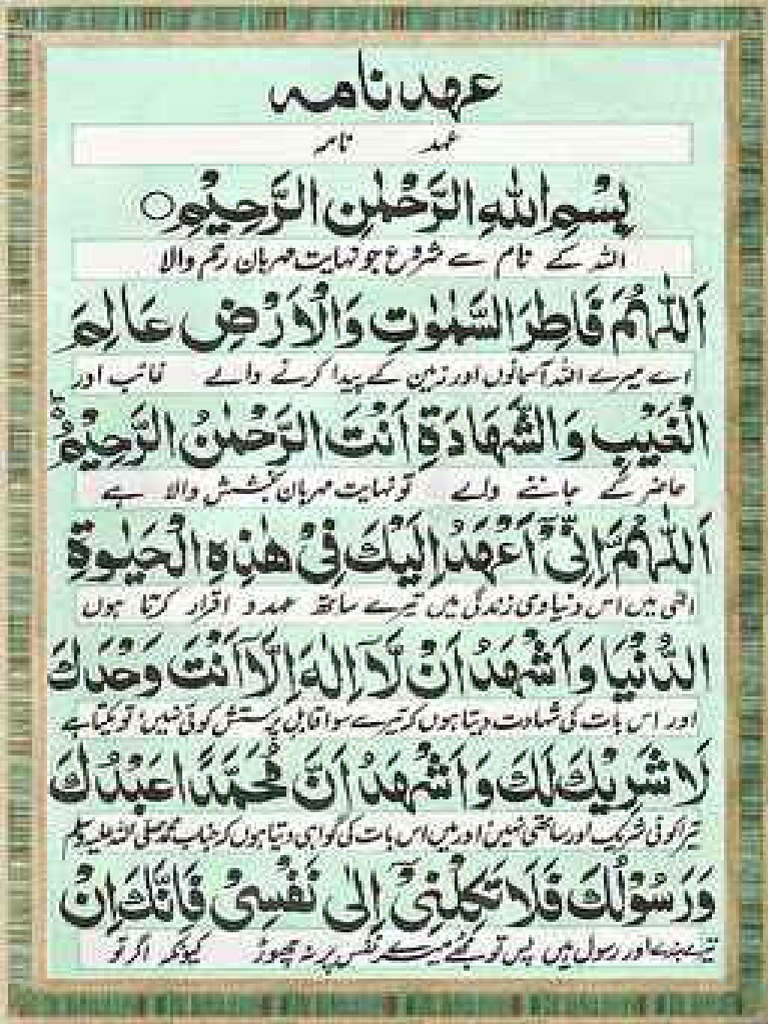 عهدنامه
عہد نامہ
بِسْمِ اللهِ الرَّحْمٰنِ الرَّحِيْمِ○
اللہ کے نام سے شروع جو نہایت مہربان رحم والا
اَللّٰهُمَّ فَاطِرَ السَّمٰوٰتِ وَالْاَرْضِ عَالِمَ
اے میرے اللہ آسمانوں اور زمین کے پیدا کرنے والے غائب اور
الْغَيْبِ وَالشَّهَادَةِ اَنْتَ الرَّحْمٰنُ الرَّحِيْمُ
حاضر کے جاننے والے تو نہایت مہربان بخشش والا ہے
اَللّٰهُمَّ اِنِّيْٓ اَعْهَدُ اِلَيْكَ فِيْ هٰذِهِ الْحَيٰوةِ
الٰہی میں اس دنیاوی زندگی میں تیرے ساتھ عہد و اقرار کرتا ہوں
الدُّنْيَا وَاَشْهَدُ اَنْ لَّآ اِلٰهَ اِلَّآ اَنْتَ وَحْدَكَ
اور اس بات کی شہادت دیتا ہوں کہ تیرے سوا قابل پرستش کوئی نہیں! تو یکتا ہے
لَا شَرِيْكَ لَكَ وَاَشْهَدُ اَنَّ مُحَمَّدًا عَبْدُكَ
تیرا کوئی شریک اور ساتھی نہیں! اور میں اس بات کی گواہی دیتا ہوں کہ جناب محمد صلی اللہ علیہ وسلم
وَرَسُوْلُكَ فَلَا تَكِلْنِيْٓ اِلٰى نَفْسِيْ فَاِنَّكَ اِنْ
تیرے بندے اور رسول ہیں پس تو مجھے میرے نفس پر نہ چھوڑ کیونکہ اگر تو